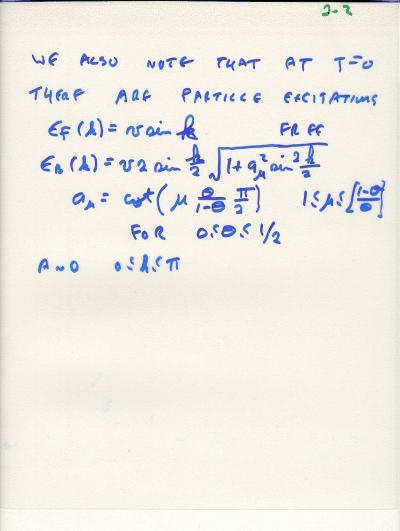 2-2
WE ALSO NOTE THAT AT T=0
THERE ARE PARTICLE EXCITATIONS
E_F(k) = v sin k FREE
E_B(k) = v 2 sin k/2 √(1 + a_μ² sin² k/2)
a_μ = cot(μ θ/(1-θ) π/2) 1 ≤ μ ≤ [(1-θ)/θ]
FOR 0 ≤ θ ≤ 1/2
AND 0 ≤ k ≤ π